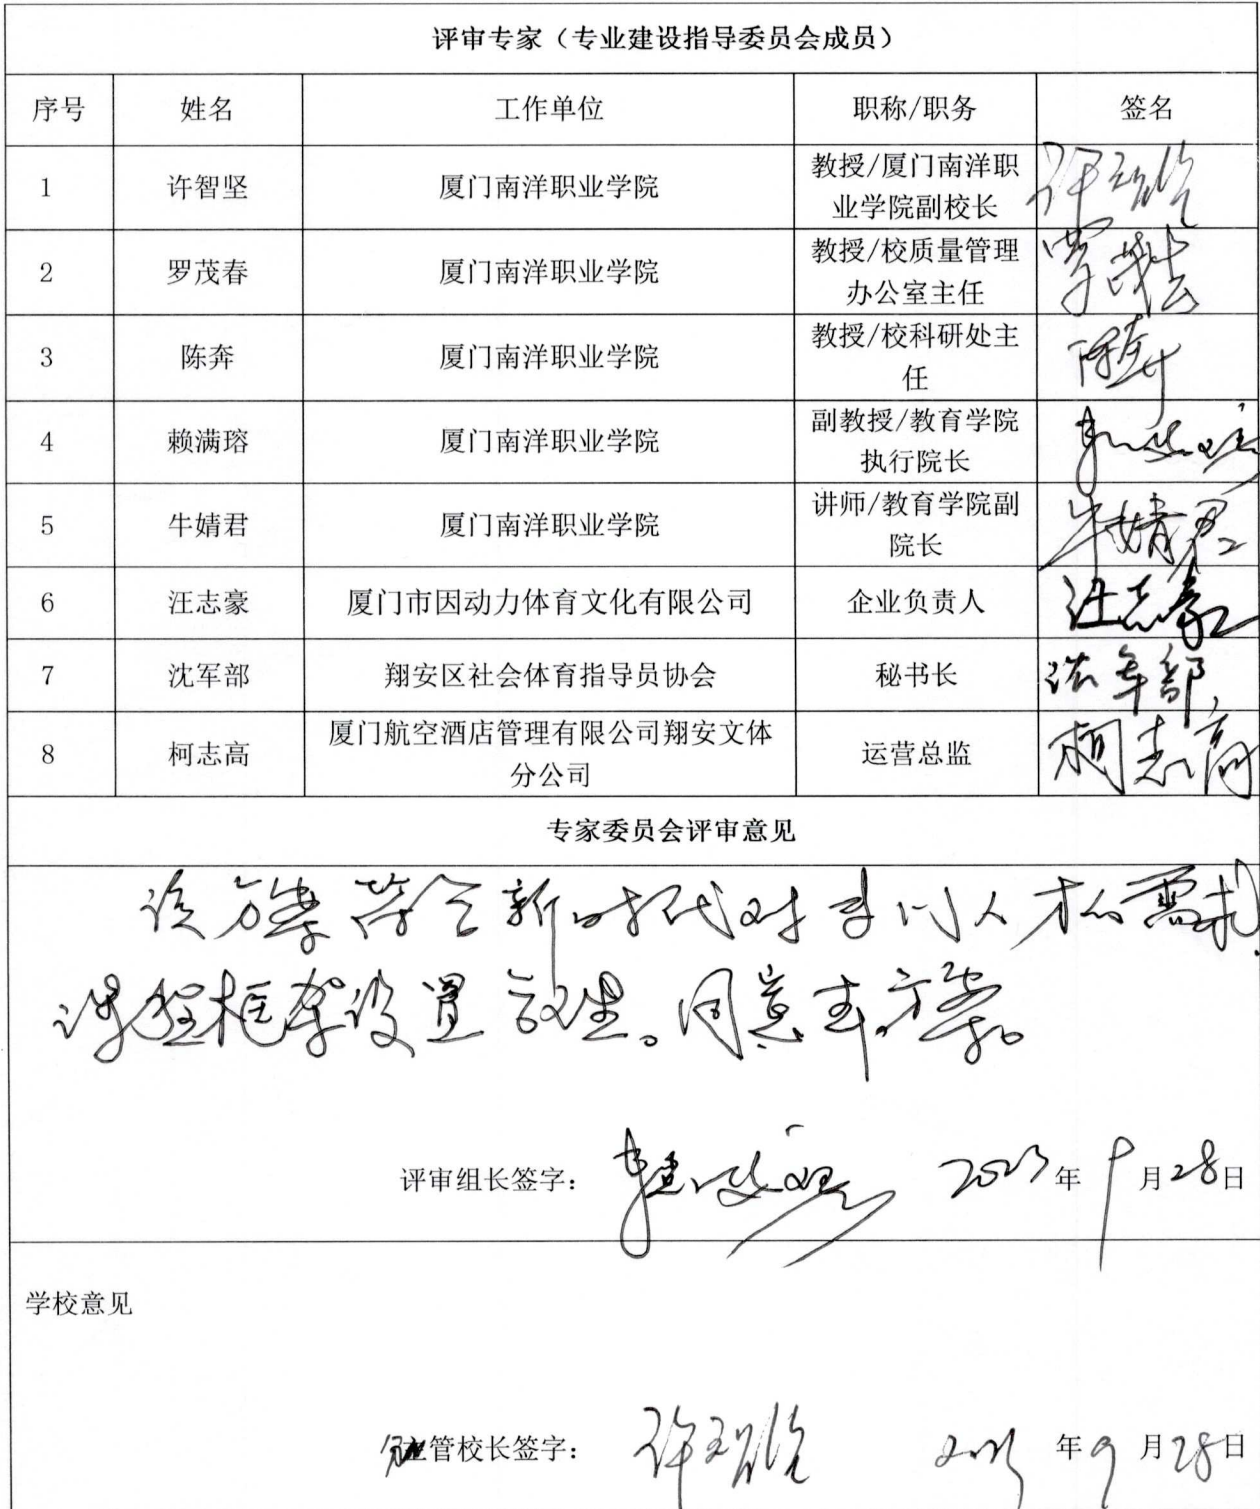 评审专家（专业建设指导委员会成员）
序号 姓名 工作单位 职称/职务 签名
1 许智坚 厦门南洋职业学院 教授/厦门南洋职业学院副校长
2 罗茂春 厦门南洋职业学院 教授/校质量管理办公室主任 罗茂春
3 陈奔 厦门南洋职业学院 教授/校科研处主任 陈奔
4 赖满瑢 厦门南洋职业学院 副教授/教育学院执行院长 赖满瑢
5 牛婧君 厦门南洋职业学院 讲师/教育学院副院长 牛婧君
6 汪志豪 厦门市因动力体育文化有限公司 企业负责人 汪志豪
7 沈军部 翔安区社会体育指导员协会 秘书长 沈军部
8 柯志高 厦门航空酒店管理有限公司翔安文体分公司 运营总监 柯志高
专家委员会评审意见
该方案符合新时代对专门人才的需求,
课程框架设置合理。同意本方案。
评审组长签字： 赖满瑢 年9月28日
学校意见
管校长签字： 年9月28日